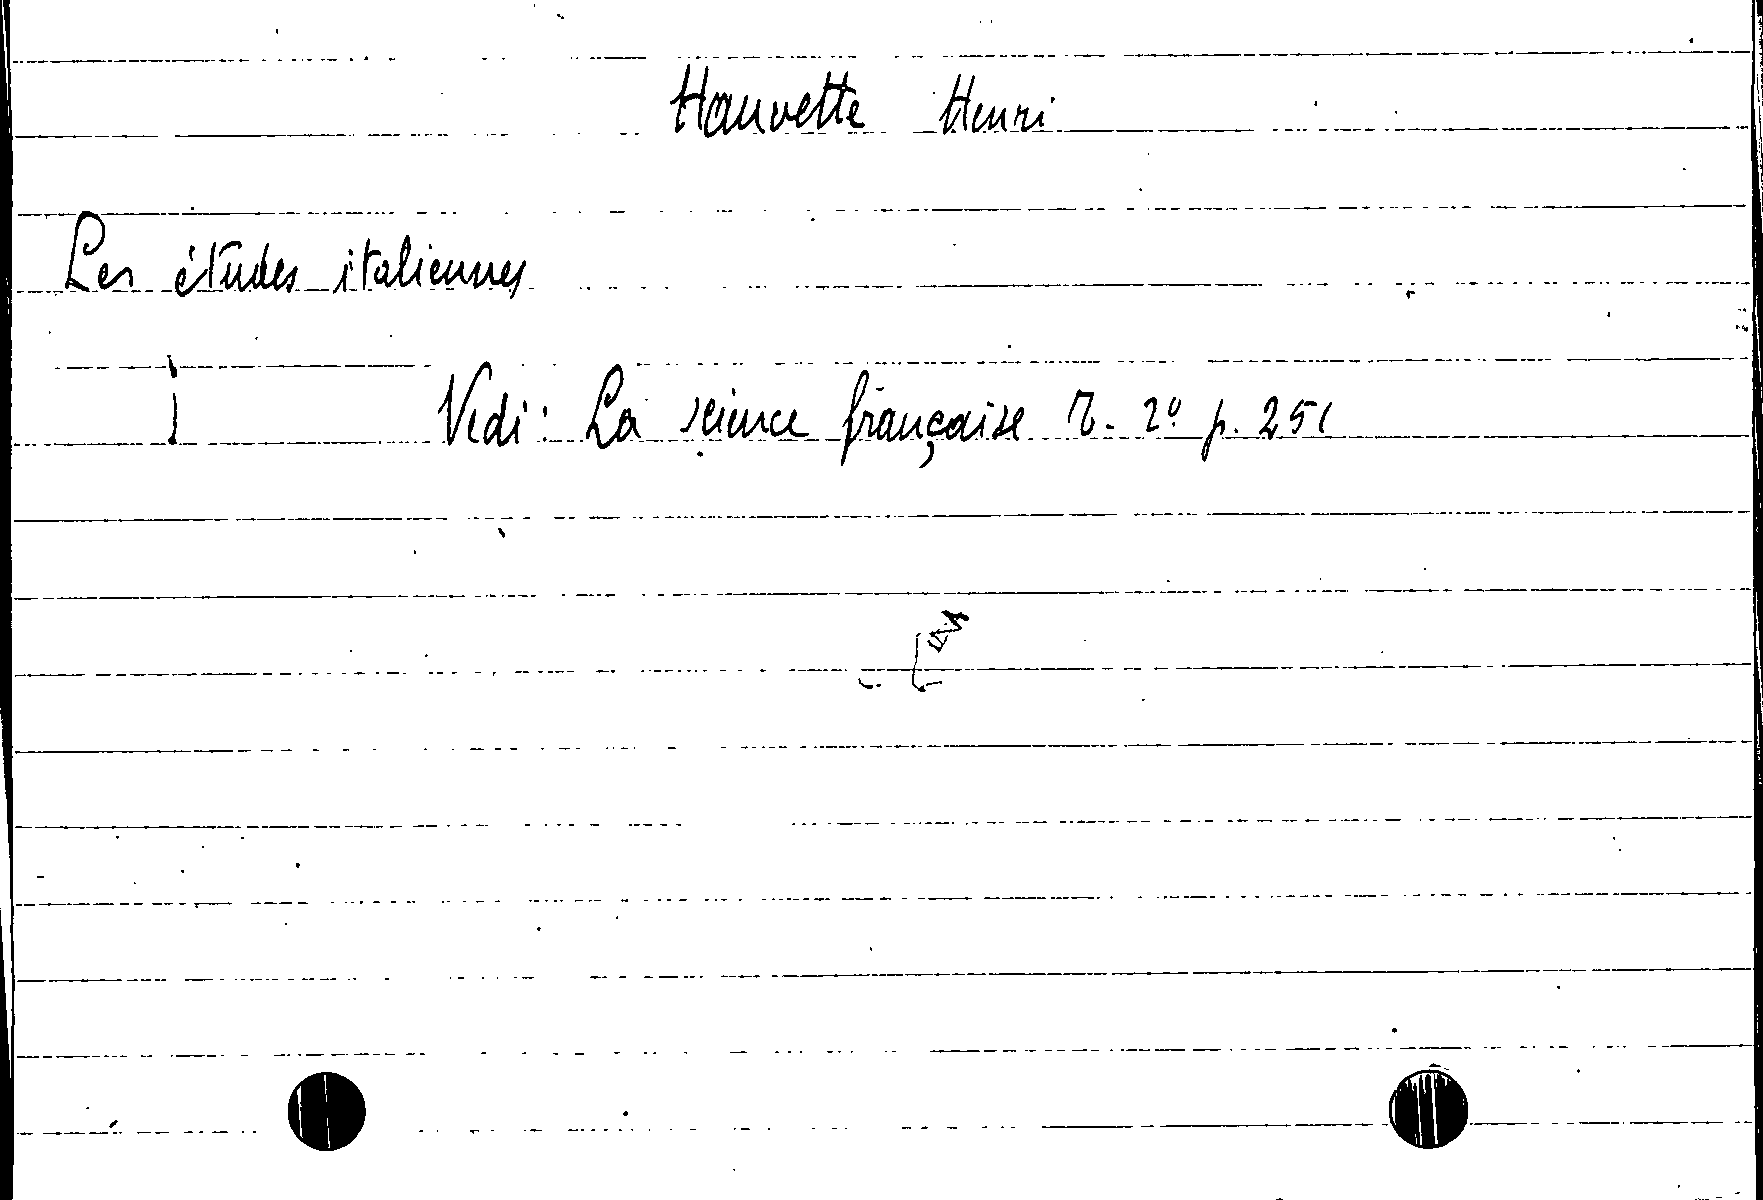 Hauvette Henri
Les études italiennes
Vedi: La science française T. 2º p. 251